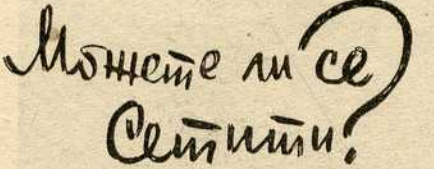 Можете ли се
Сетити?